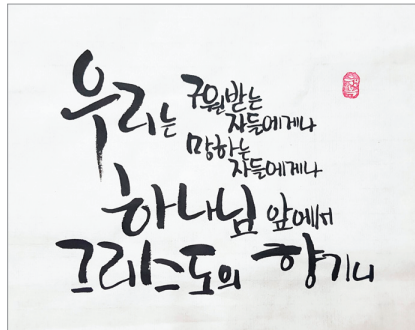 우리는 구원받는
자들에게나
망하는
자들에게나
하나님 앞에서
그리스도의 향기니